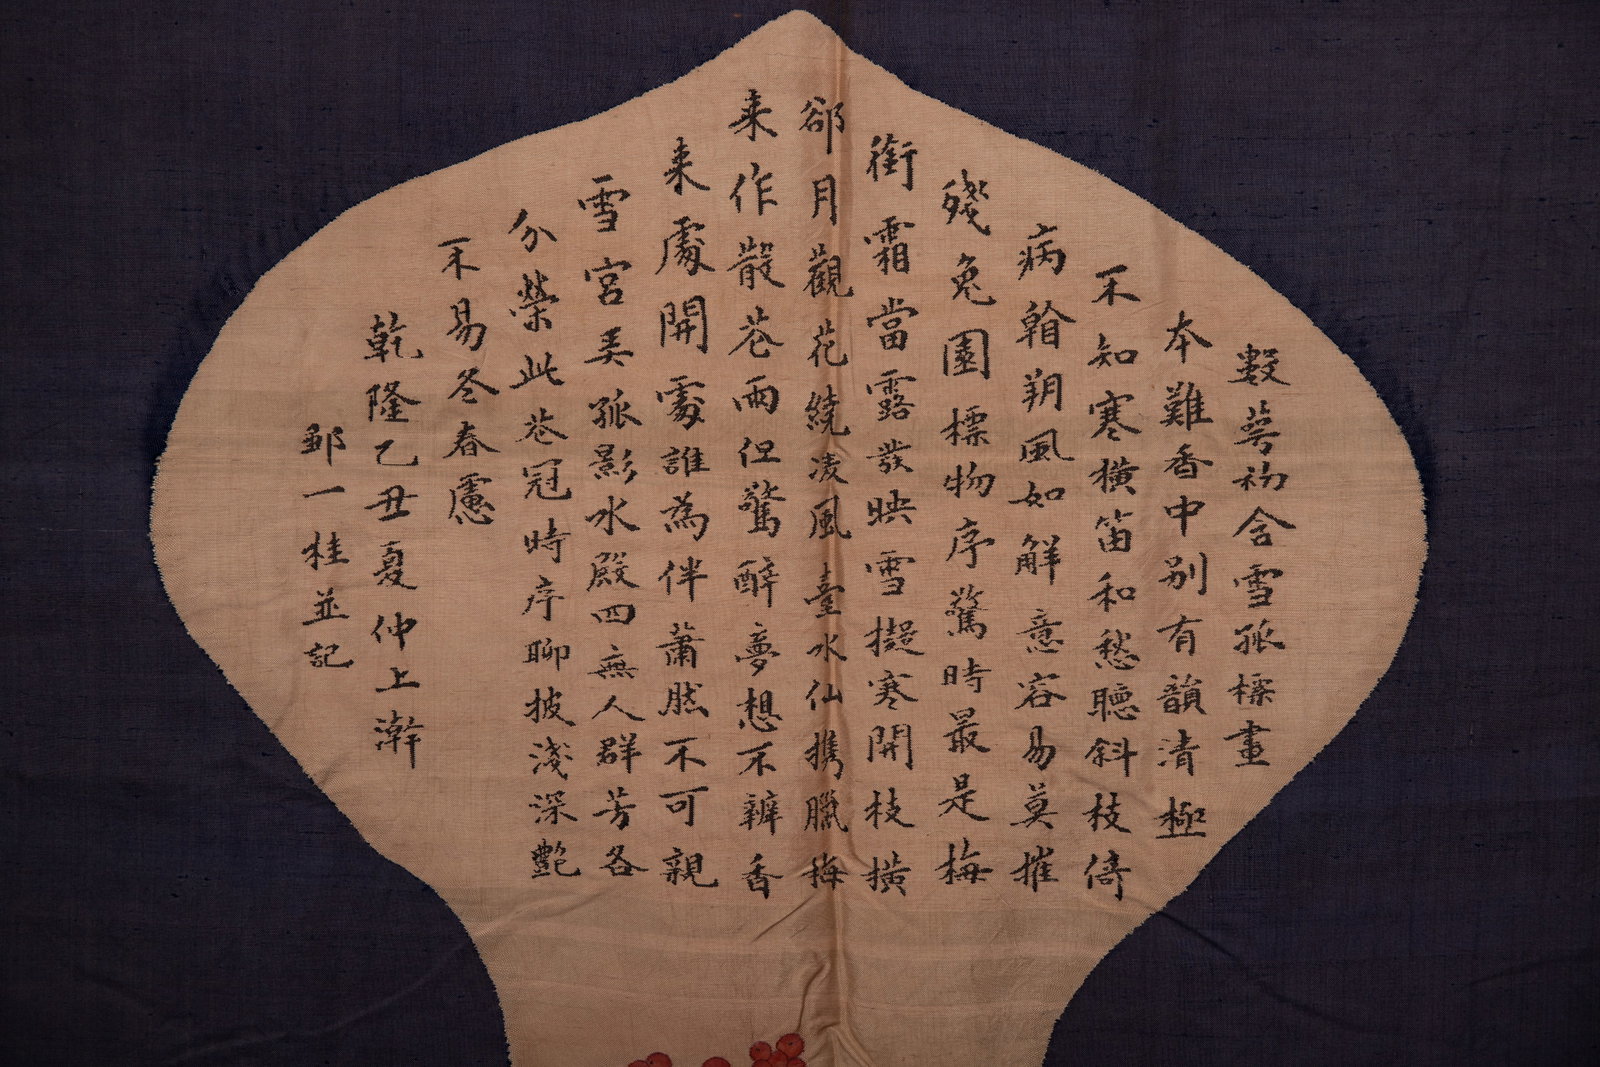 數萼初含雪孤標畫
本難香中別有韻清極
不知寒橫笛和愁聽斜枝倚
病翰朔風如解意容易莫摧
殘兔園標物序驚時最是梅
銜霜當露發映雪擬寒開枝橫
郤月觀花繞凌風臺水仙攜臘梅
来作散花雨但驚醉夢想不辨香
来處開處誰為伴蕭然不可親
雪宮美孤影水殿四無人群芳各
分榮此花冠時序聊披淺深艷
不易冬春慮
乾隆乙丑夏仲上澣
鄒一桂並記